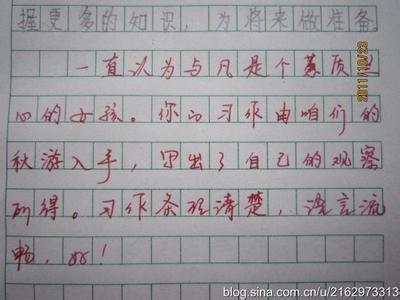 握更多的知识，为将来做准备。
一直以为与凡是个蕙质兰
心的女孩。你的习作由咱们的
秋游入手，写出了自己的观察
所得。习作条理清楚，语言流
畅，好！
2011/10/23
blog.sina.com.cn/u/2162973313